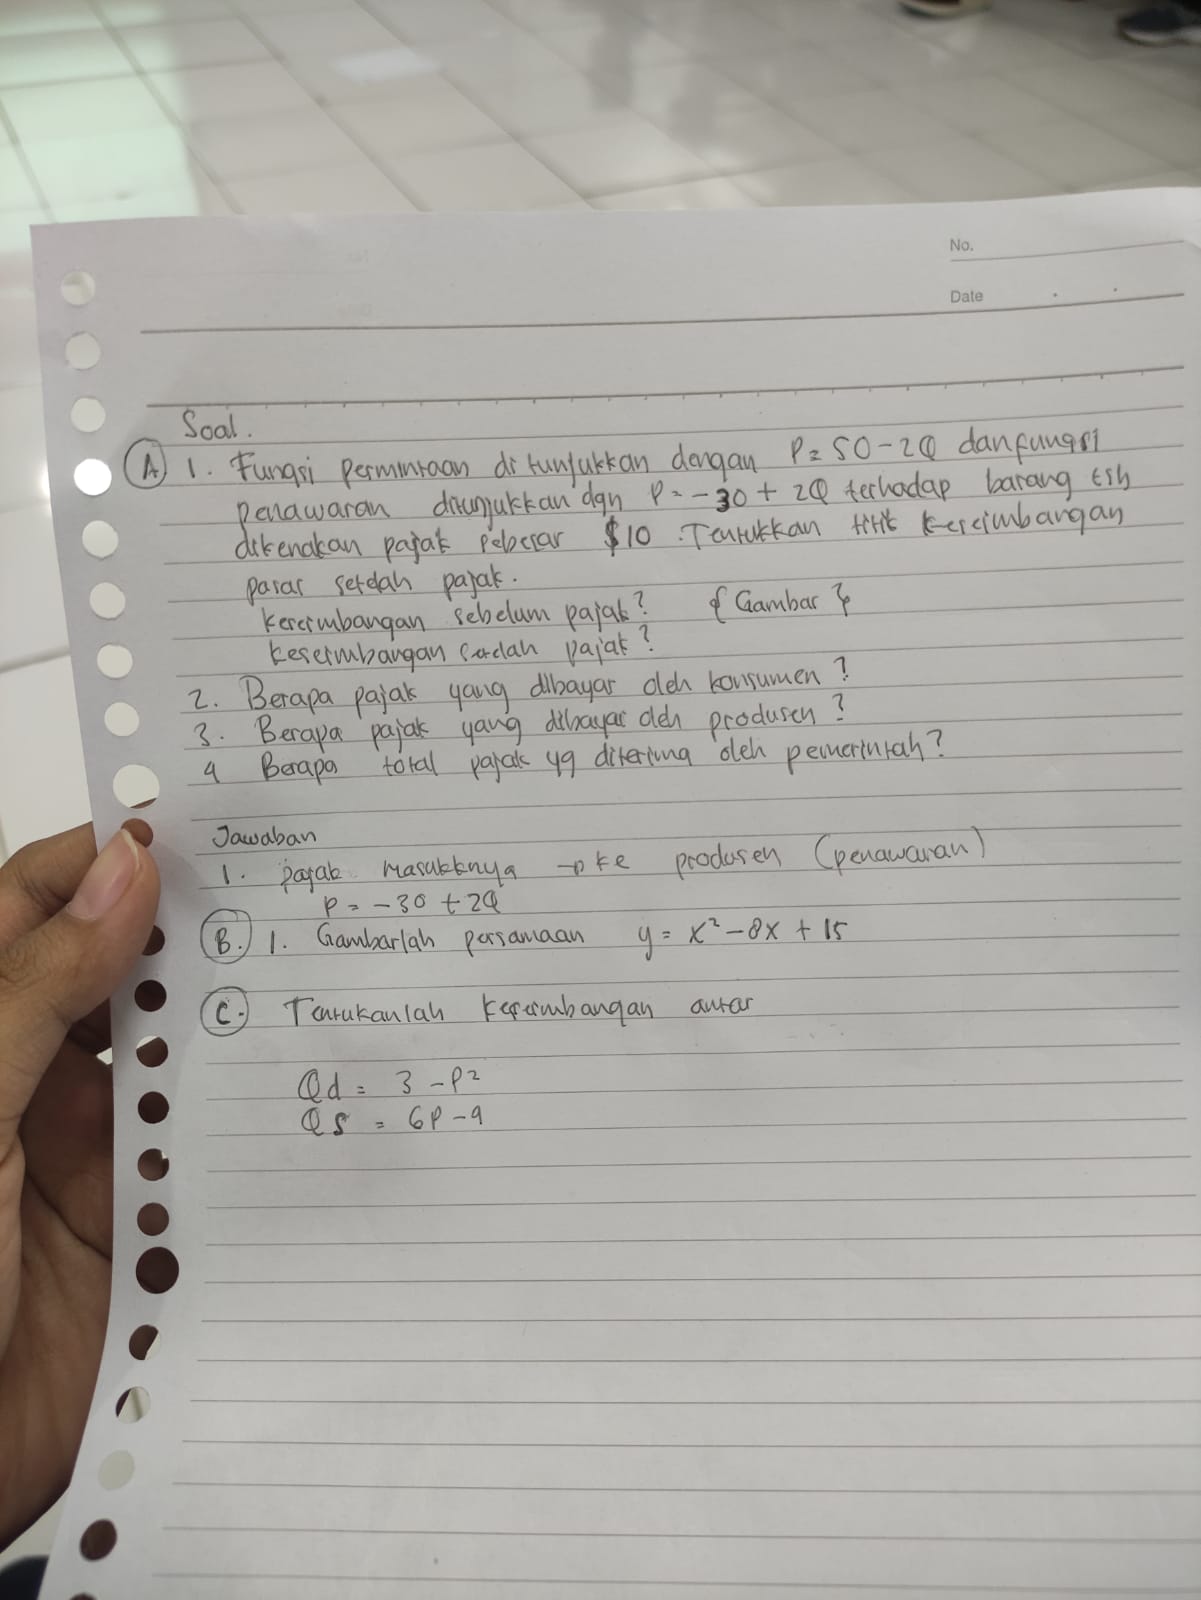 No.
Date
Soal.
A 1. Fungsi permintaan ditunjukkan dengan P = 50 - 2Q dan fungsi
penawaran ditunjukkan dgn P = -30 + 2Q terhadap barang tsb
dikenakan pajak sebesar $10. Tentukkan titik keseimbangan
pasar setelah pajak.
keseimbangan sebelum pajak? { Gambar }
keseimbangan setelah pajak?
2. Berapa pajak yang dibayar oleh konsumen?
3. Berapa pajak yang dibayar oleh produsen?
4 Berapa total pajak yg diterima oleh pemerintah?
Jawaban
1. pajak masukknya → ke produsen (penawaran)
P = -30 + 2Q
B. 1. Gambarlah persamaan y = x² - 8x + 15
C. Tentukanlah keseimbangan antar
Qd = 3 - P²
QS = 6P - 9